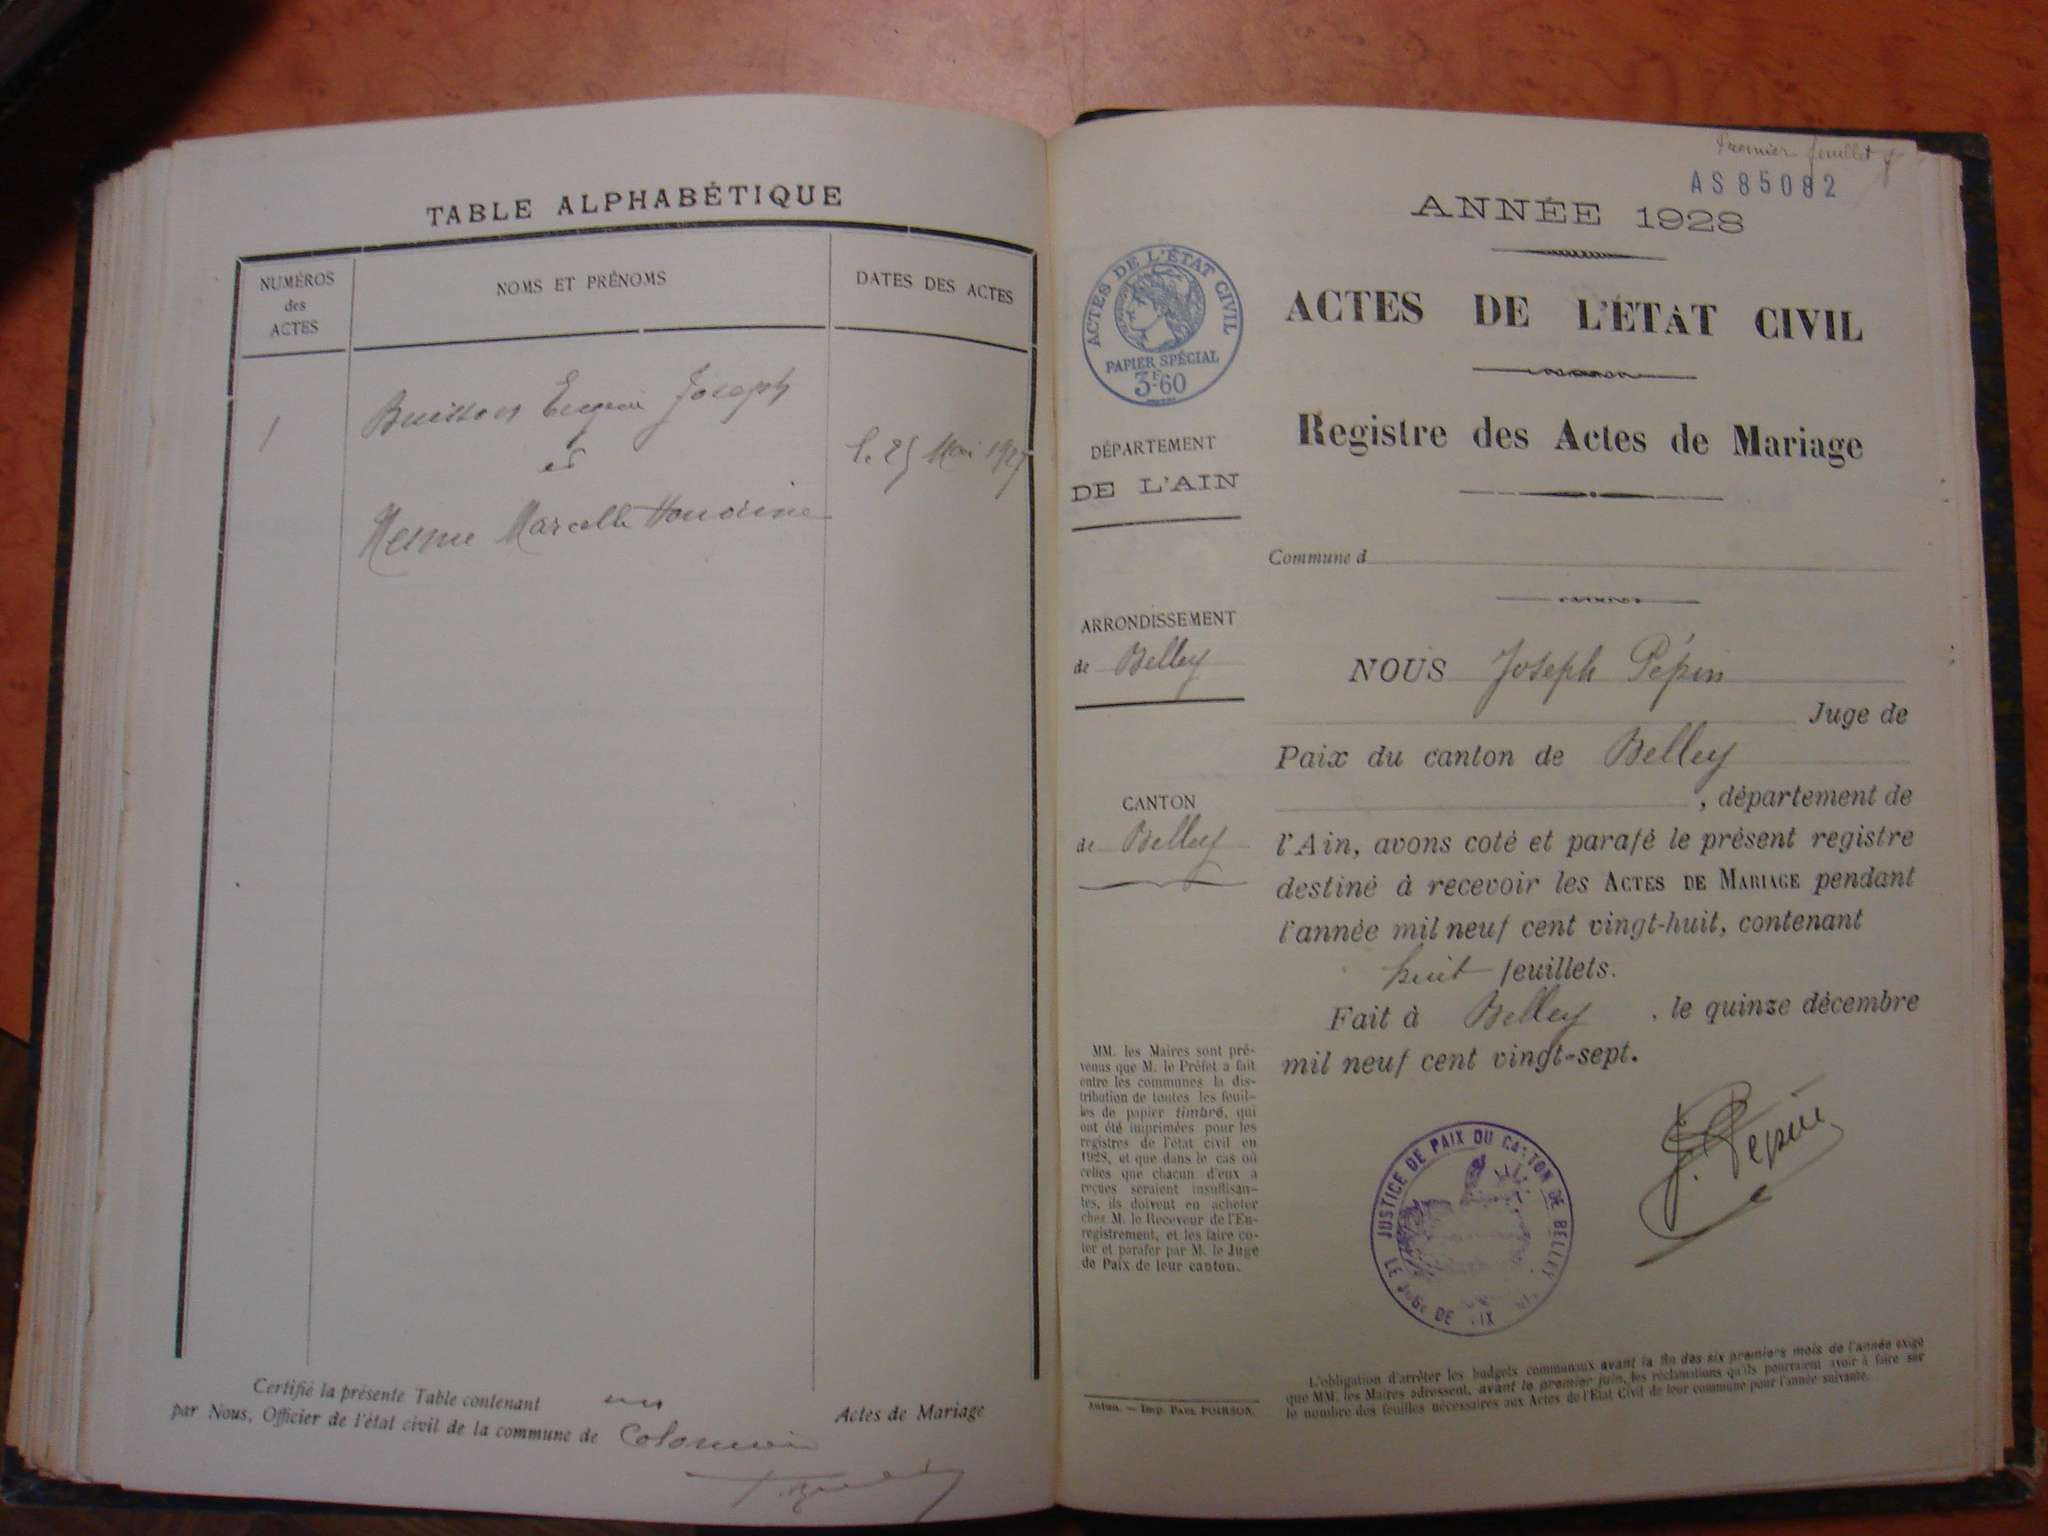 TABLE ALPHABÉTIQUE
NUMÉROS
des
ACTES
NOMS ET PRÉNOMS
DATES DES ACTES
1
Buisson Eugène Joseph
et
le 25 Mai 1927
Mesme Marcelle Honorine
Certifié la présente Table contenant un Actes de Mariage
par Nous, Officier de l'état civil de la commune de Colomieu
Premier feuillet
AS 85082
ANNÉE 1928
ACTES DE L'ÉTAT CIVIL
PAPIER SPÉCIAL
3F.60
ACTES DE L'ÉTAT CIVIL
Registre des Actes de Mariage
DÉPARTEMENT
DE L'AIN
Commune d
ARRONDISSEMENT
de Belley
CANTON
de Belley
NOUS Joseph Pépin
Juge de
Paix du canton de Belley
, département de
l'Ain, avons coté et parafé le présent registre
destiné à recevoir les ACTES DE MARIAGE pendant
l'année mil neuf cent vingt-huit, contenant
huit feuillets.
Fait à Belley, le quinze décembre
mil neuf cent vingt-sept.
J. Pépin
JUSTICE DE PAIX DU CANTON DE BELLEY
MM. les Maires sont pré-
venus que M. le Préfet a fait
entre les communes la dis-
tribution de toutes les feuil-
les de papier timbré, qui
ont été imprimées pour les
registres de l'état civil en
1928, et que dans le cas où
celles que chacun d'eux a
reçues seraient insuffisan-
tes, ils doivent en acheter
chez M. le Receveur de l'En-
registrement, et les faire co-
ter et parafer par M. le Juge
de Paix de leur canton.
Autun. — Imp. PAUL POIRSON.
L'obligation d'arrêter les budgets communaux avant la fin des six premiers mois de l'année exige
que MM. les Maires adressent, avant le premier juin, les réclamations qu'ils pourraient avoir à faire sur
le nombre des feuilles nécessaires aux Actes de l'État Civil de leur commune pour l'année suivante.